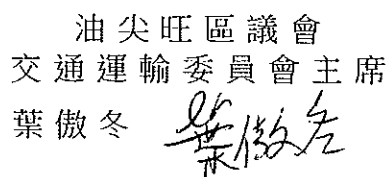 油尖旺區議會
交通運輸委員會主席
葉傲冬 葉傲冬